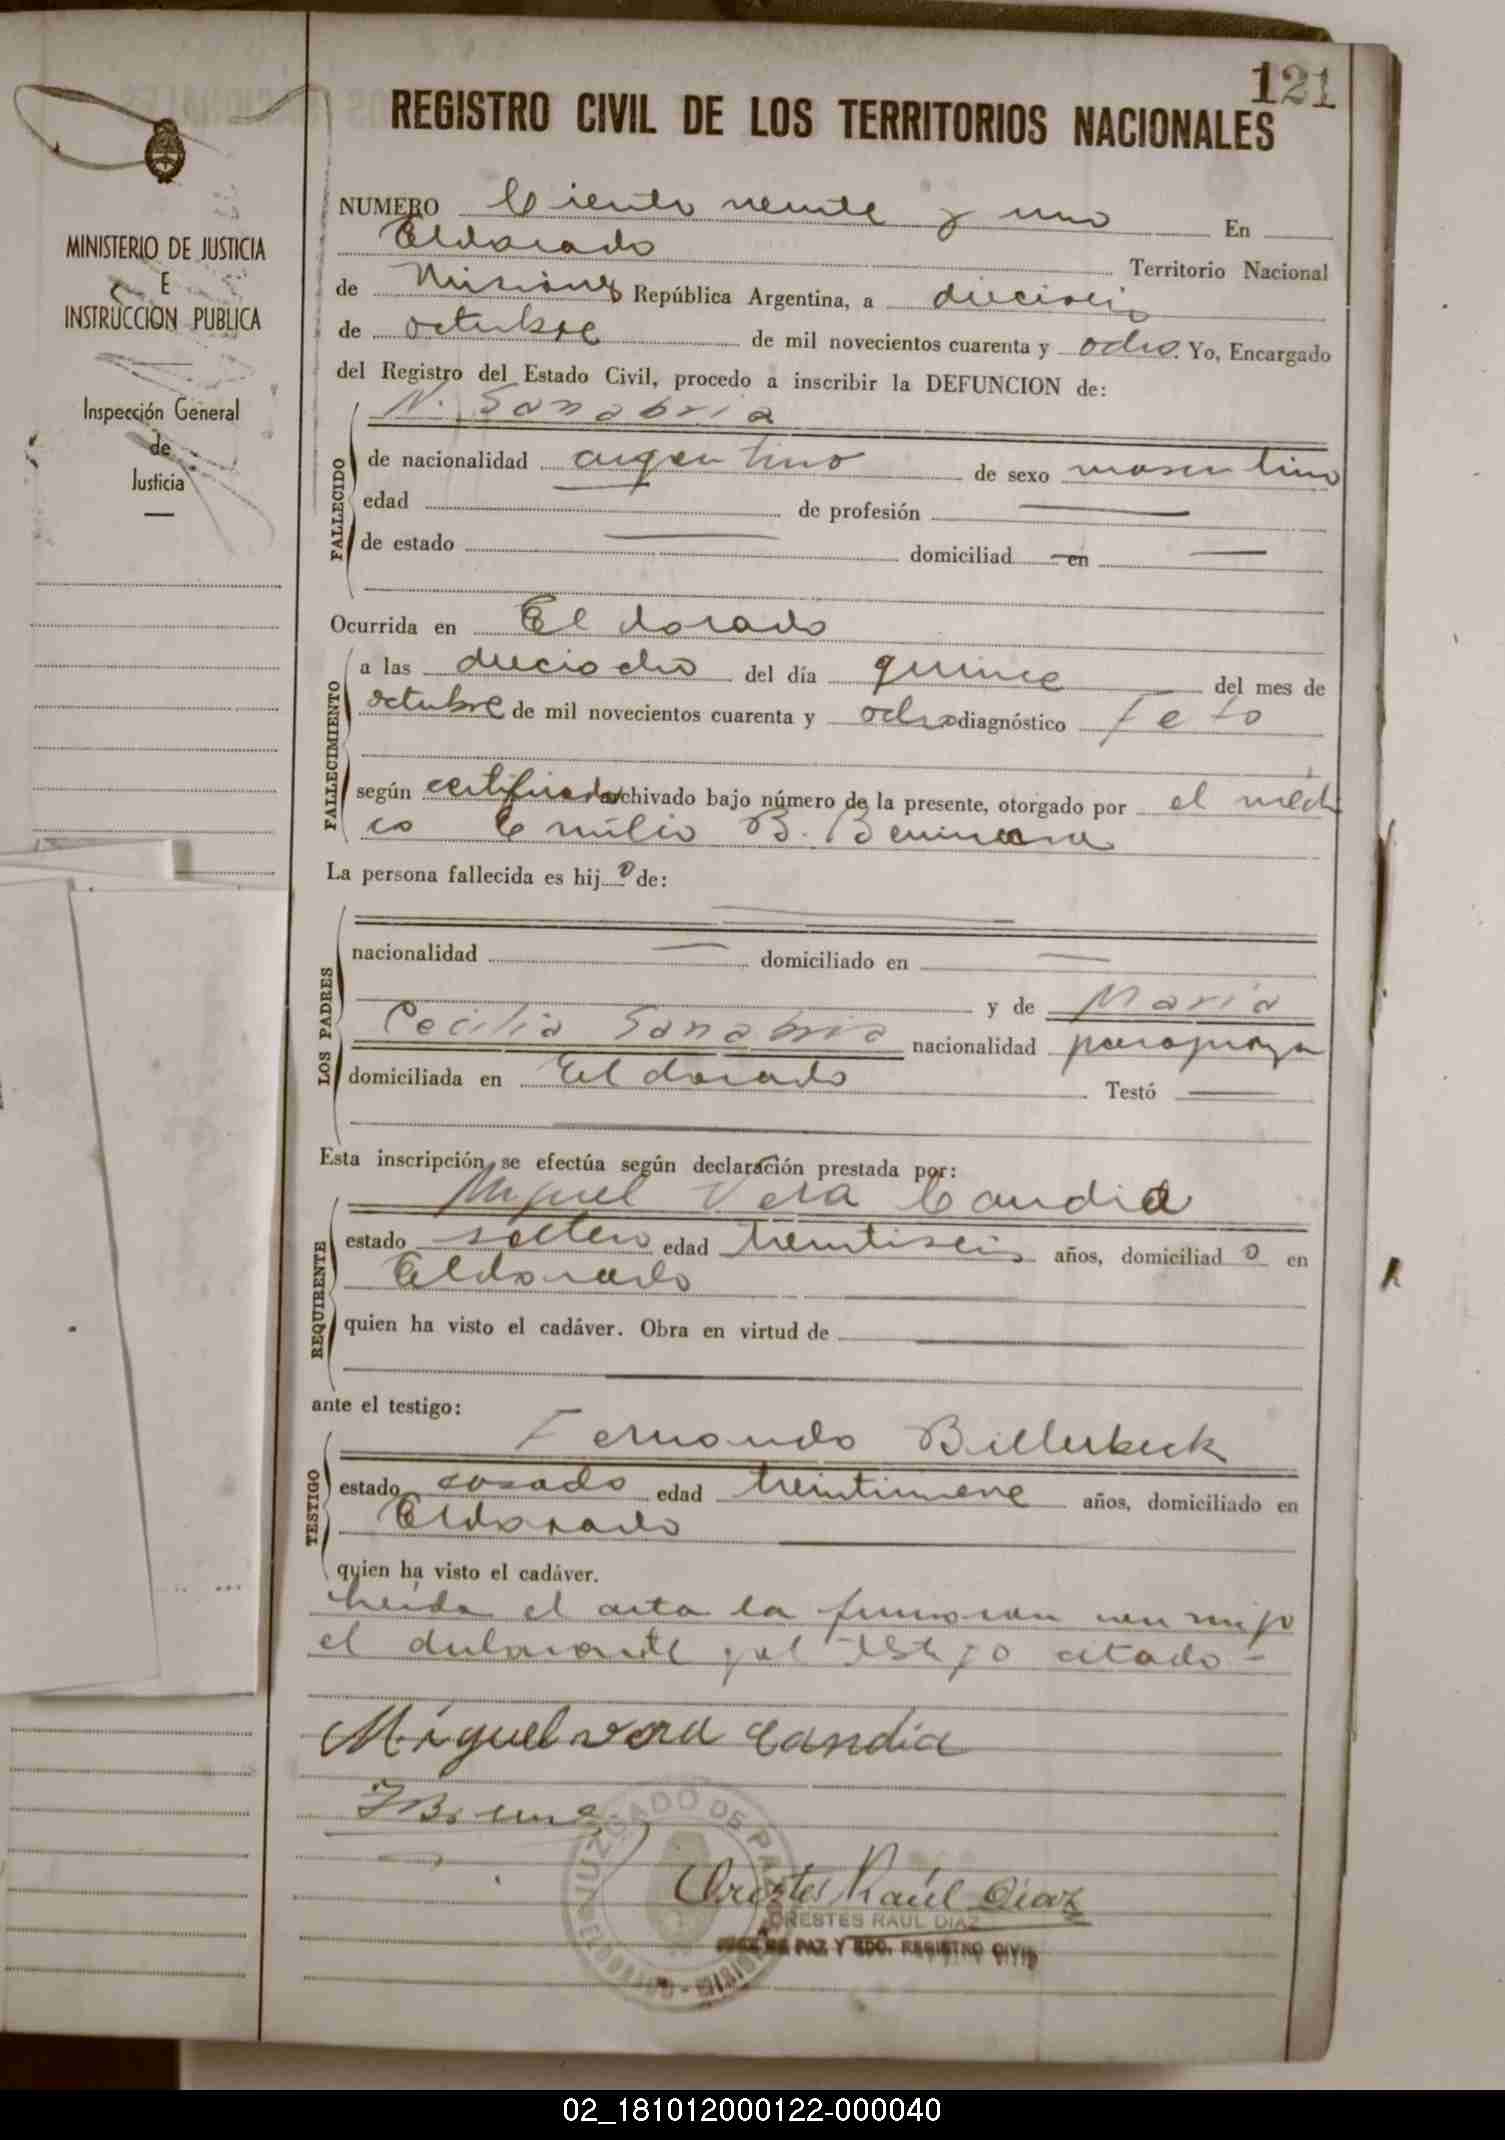 121
REGISTRO CIVIL DE LOS TERRITORIOS NACIONALES
MINISTERIO DE JUSTICIA
E
INSTRUCCION PUBLICA
Inspección General
de
Justicia
NUMERO Ciento veinte y uno En
Eldorado Territorio Nacional
de Misiones República Argentina, a dieciseis
de octubre de mil novecientos cuarenta y ocho. Yo, Encargado
del Registro del Estado Civil, procedo a inscribir la DEFUNCION de:
N. Sanabria
FALLECIDO
de nacionalidad argentino de sexo masculino
edad de profesión
de estado domiciliad en
Ocurrida en Eldorado
FALLECIMIENTO
a las dieciocho del día quince del mes de
octubre de mil novecientos cuarenta y ocho diagnóstico Feto
según certificado archivado bajo número de la presente, otorgado por el médi
co Emilio B.
La persona fallecida es hijo de:
LOS PADRES
nacionalidad domiciliado en
y de Maria
Cecilia Sanabria nacionalidad paraguaya
domiciliada en Eldorado Testó
Esta inscripción se efectúa según declaración prestada por:
Miguel Vera Candia
REQUIRENTE
estado soltero edad treintiseis años, domiciliado en
Eldorado
quien ha visto el cadáver. Obra en virtud de
ante el testigo:
Fernando Billerbeck
TESTIGO
estado casado edad treintinueve años, domiciliado en
Eldorado
quien ha visto el cadáver.
Leida el acta la firmaron conmigo
el declarante y el testigo citado -
Miguel vera Candia
JUZGADO DE PAZ
ELDORADO - MISIONES
Orestes Raúl Díaz
ORESTES RAUL DIAZ
JUEZ DE PAZ Y EDO. REGISTRO CIVIL
02_181012000122-000040